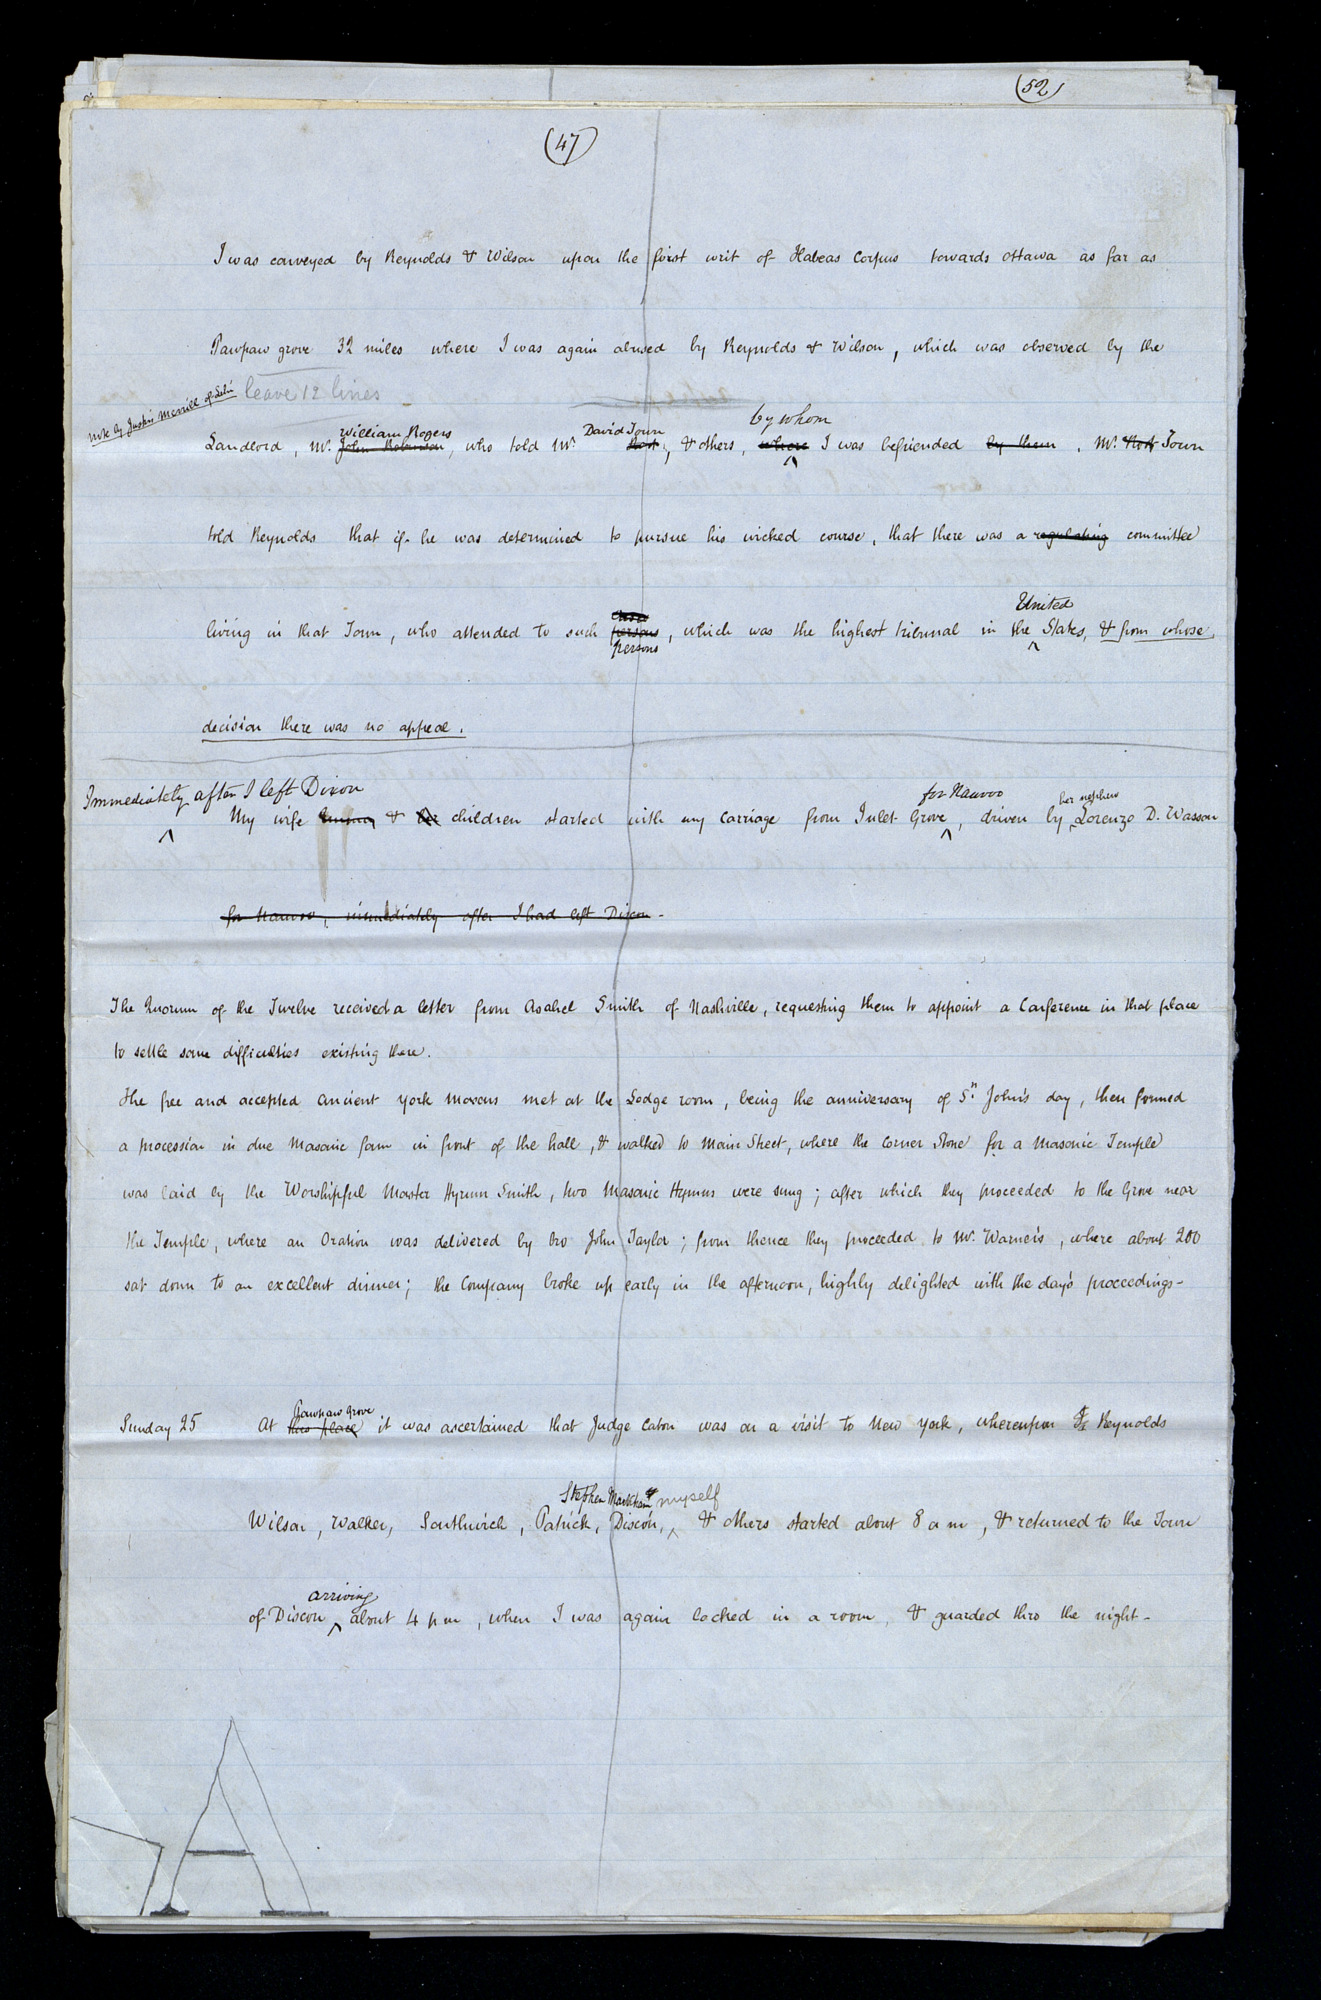 (52)
(47)
I was conveyed by Reynolds & Wilson upon the first writ of Habeas Corpus towards Ottawa as far as
Pawpaw grove 32 miles where I was again abused by Reynolds & Wilson, which was observed by the
leave 12 lines
note by Justin Merrill of Lehi
William Rogers David Town by whom
Landlord, Mr. John Robinson, who told Mr. , & others, where I was befriended by them. Mr. Town
told Reynolds that if he was determined to pursue his wicked course, that there was a regulating committee
United
living in that Town, who attended to such persons, which was the highest tribunal in the States, & from whose
persons
decision there was no appeal.
Immediately after I left Dixon for Nauvoo her nephew
My wife Emma & her children started with my carriage from Inlet Grove, driven by Lorenzo D. Wasson
for Nauvoo, immediately after I had left Dixon-
The Quorum of the Twelve received a letter from Asahel Smith of Nashville, requesting them to appoint a Conference in that place
to settle some difficulties existing there.
The free and accepted ancient york masons met at the Lodge room, being the anniversary of St. John's day, then formed
a procession in due Masonic form in front of the hall, & walked to Main Street, where the corner Stone for a Masonic Temple
was laid by the Worshipful Master Hyrum Smith, two Masonic Hymns were sung; after which they proceeded to the Grove near
the Temple, where an Oration was delivered by bro John Taylor; from thence they proceeded to Mr. Warner's, where about 200
sat down to an excellent dinner; the Company broke up early in the afternoon, highly delighted with the day's proceedings-
Pawpaw Grove
Sunday 25 At this place it was ascertained that Judge Caton was on a visit to New York, whereupon I Reynolds
Stephen Markham & myself
Wilson, Walker, Southwick, Patrick, Dixon, & others started about 8 a m, & returned to the Town
arriving
of Dixon about 4 p m, when I was again locked in a room, & guarded thro the night-
A